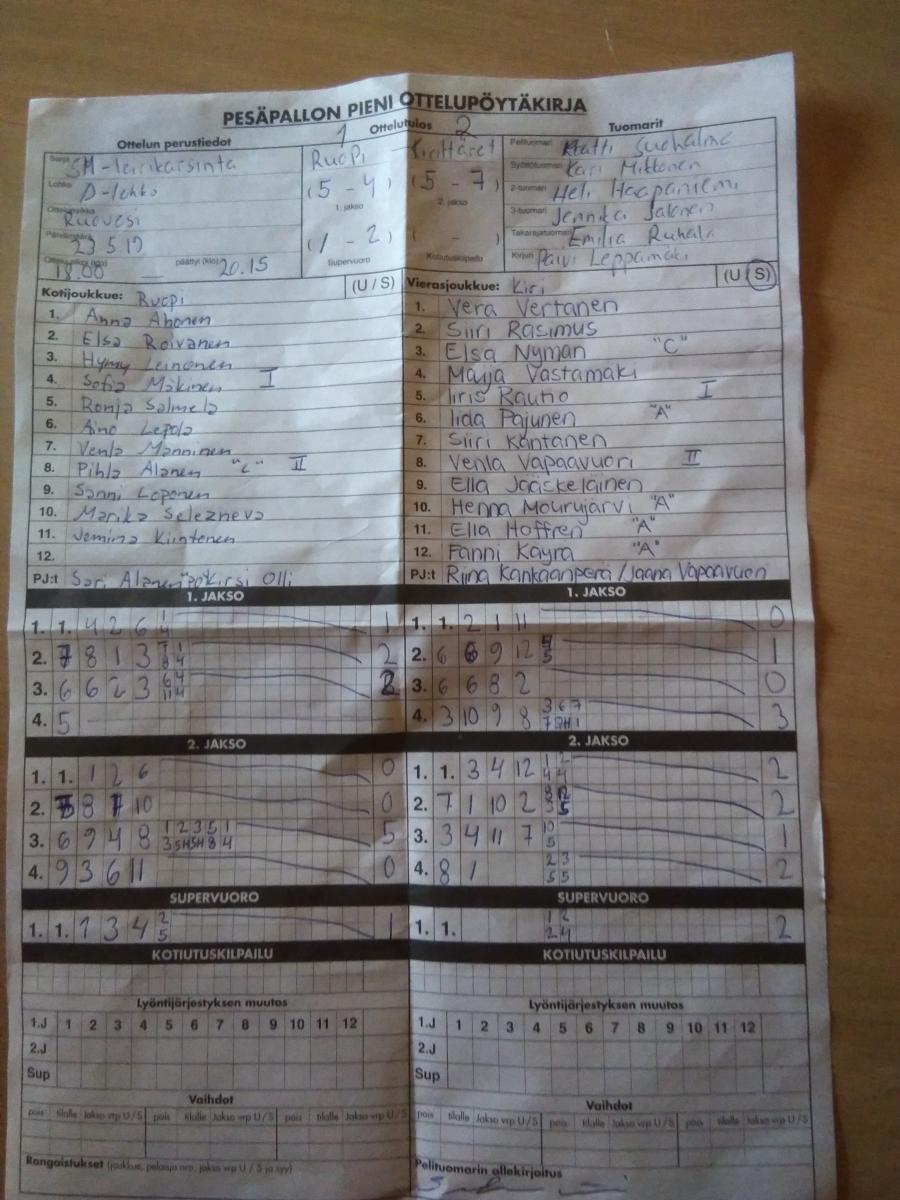 PESÄPALLON PIENI OTTELUPÖYTÄKIRJA
Ottelun perustiedot
1 Ottelutulos 2
Tuomarit
Sarja SM-leirikarsinta
Lohko D-lohko
Ruovesi
23.5.19
18.00 päättyi (klo) 20.15
RuoPi Kirittäret
(5 - 4) (5 - 7)
1. jakso 2. jakso
(1 - 2) ( - )
Supervuoro Kotiutuskilpailu
Pelituomari Matti Suohalme
Syöttötuomari Kari Mikkonen
2-tuomari Heli Haapaniemi
3-tuomari Jennika Salonen
Takarajatuomari Emilia Ruhala
Kirjuri Päivi Leppämäki
Kotijoukkue: Ruopi (U / S)
1. Anna Ahonen
2. Elsa Roivanen
3. Hymy Leinonen
4. Sofia Mäkinen I
5. Ronja Salmela
6. Aino Lepola
7. Venla Manninen
8. Pihla Alanen "C" II
9. Sanni Loponen
10. Marika Selezneva
11. Jemina Kiintonen
12.
PJ:t Sari Alanen Kirsi Olli
Vierasjoukkue: Kiri (U / S)
1. Vera Vertanen
2. Siiri Rasimus
3. Elsa Nyman "C"
4. Maija Vastamäki
5. Iiris Rautio I
6. Iida Pajunen "A"
7. Siiri Kontanen
8. Venla Vapaavuori II
9. Ella Jääskeläinen
10. Henna Mourujärvi "A"
11. Ella Hoffren "A"
12. Fanni Kayra "A"
PJ:t Riina Kankaanperä / Jaana Vapaavuori
1. JAKSO
1. 1. 4 2 6 1 4 1
2. 7 8 1 3 2
3. 6 6 2 3 2
4. 5
1. JAKSO
1. 1. 2 1 11 0
2. 6 8 9 12 1
3. 6 6 8 2 0
4. 3 10 9 8 3 6 7 3
2. JAKSO
1. 1. 1 2 6 0
2. 8 10 0
3. 6 9 4 8 1 2 3 5 1 5
3 5H 5H 8 4
4. 9 3 6 11 0
2. JAKSO
1. 1. 3 4 12 1 2 2
4 4
2. 7 1 10 2 2
3. 3 4 11 7 10 1
5
4. 8 1 2 3 2
5 5
SUPERVUORO
1. 1. 1 3 4 2 1
5
SUPERVUORO
1. 1. 1 2 2
2 4
KOTIUTUSKILPAILU
KOTIUTUSKILPAILU
Lyöntijärjestyksen muutos
1.J 1 2 3 4 5 6 7 8 9 10 11 12
2.J
Sup
Lyöntijärjestyksen muutos
1.J 1 2 3 4 5 6 7 8 9 10 11 12
2.J
Sup
Vaihdot
pois tilalle Jakso vrp U / S pois tilalle Jakso vrp U / S pois tilalle Jakso vrp U / S
Rangaistukset (joukkue, pelaaja nro, jakso vrp U / S ja syy)
Vaihdot
pois tilalle Jakso vrp U / S pois tilalle Jakso vrp U / S pois tilalle Jakso vrp U / S
Pelituomarin allekirjoitus